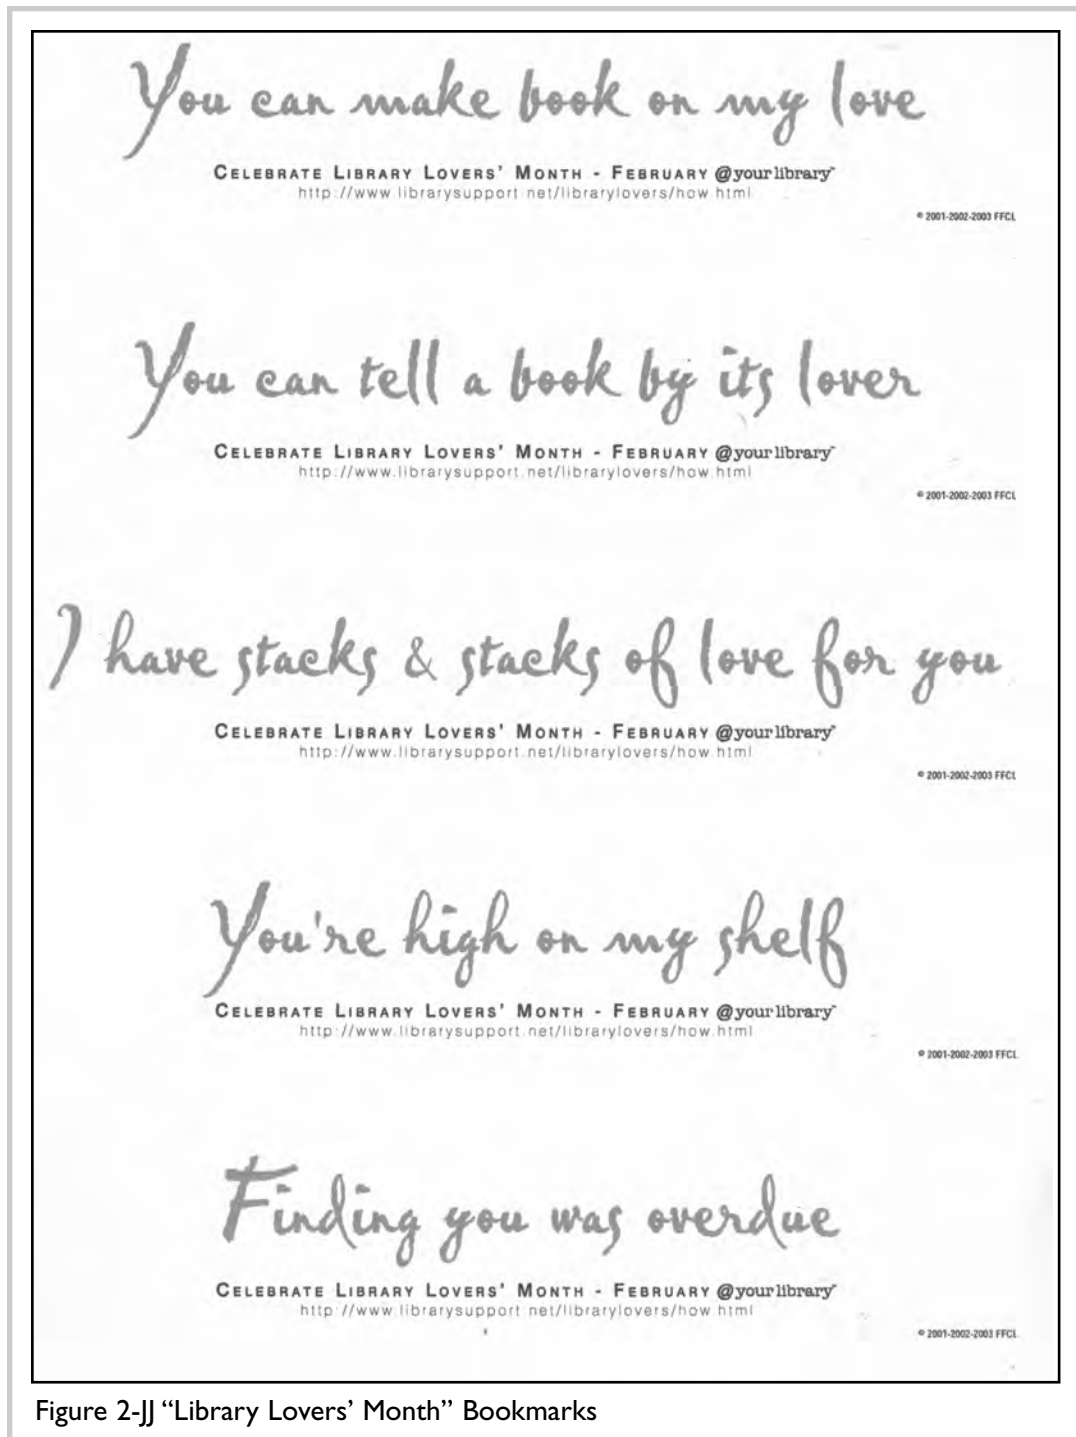 You can make book on my love
CELEBRATE LIBRARY LOVERS' MONTH - FEBRUARY @ your library™
http://www.librarysupport.net/librarylovers/how.html
© 2001-2002-2003 FFCL
You can tell a book by its lover
CELEBRATE LIBRARY LOVERS' MONTH - FEBRUARY @ your library™
http://www.librarysupport.net/librarylovers/how.html
© 2001-2002-2003 FFCL
I have stacks & stacks of love for you
CELEBRATE LIBRARY LOVERS' MONTH - FEBRUARY @ your library™
http://www.librarysupport.net/librarylovers/how.html
© 2001-2002-2003 FFCL
You're high on my shelf
CELEBRATE LIBRARY LOVERS' MONTH - FEBRUARY @ your library™
http://www.librarysupport.net/librarylovers/how.html
© 2001-2002-2003 FFCL
Finding you was overdue
CELEBRATE LIBRARY LOVERS' MONTH - FEBRUARY @ your library™
http://www.librarysupport.net/librarylovers/how.html
© 2001-2002-2003 FFCL
Figure 2-JJ “Library Lovers’ Month” Bookmarks